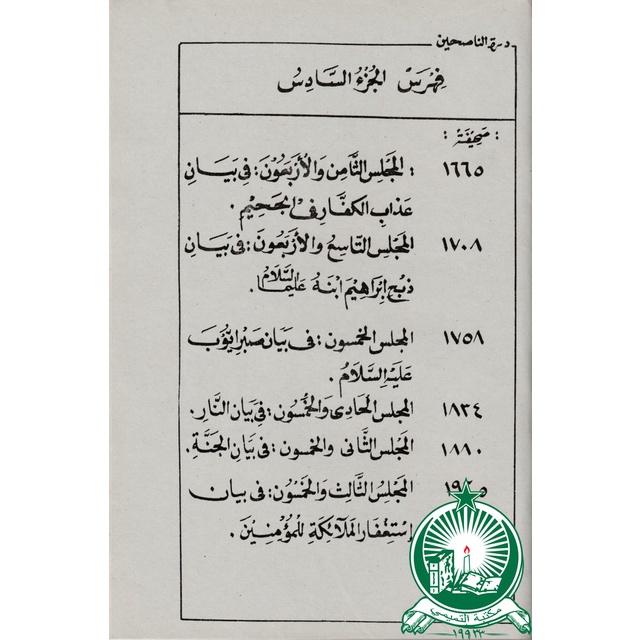 درة الناصحين
فِهْرَسْ الجُزْءُ السَّادِسُ
: صَحِيْفَة :
١٦٦٥ : المَجْلِسُ الثَّامِنُ وَالأَرْبَعُوْنَ : فِى بَيَانِ
عَذَابِ الكفَّارِ فِى الْجَحِيْمِ .
١٧٠٨ المَجْلِسُ التَّاسِعُ وَالأَرْبَعُونَ : فى بَيَانِ
ذَبْحِ إِبْرَاهِيْمَ ابْنَهُ عَلَيْهِمَا السَّلَامُ .
١٧٥٨ المجلس الخمسون : فى بَيَانِ صَبْرِ ايُّوْبَ
عَلَيْهِ السَّلَامُ .
١٨٣٤ المجلس الحَادِى وَالخَمْسُونَ : فِى بَيَانِ النَّارِ .
١٨٨٠ المَجْلِسُ الثَّانى والخمسون : فى بَيَانِ الجَنَّةِ .
المَجْلِسُ الثَّالِث وَالخَمْسُوْنَ : فى بيان
إِسْتِغْفَارِ المَلَآئِكَةِ لِلْمُؤْمِنِيْنَ .
مكتبة التميمي